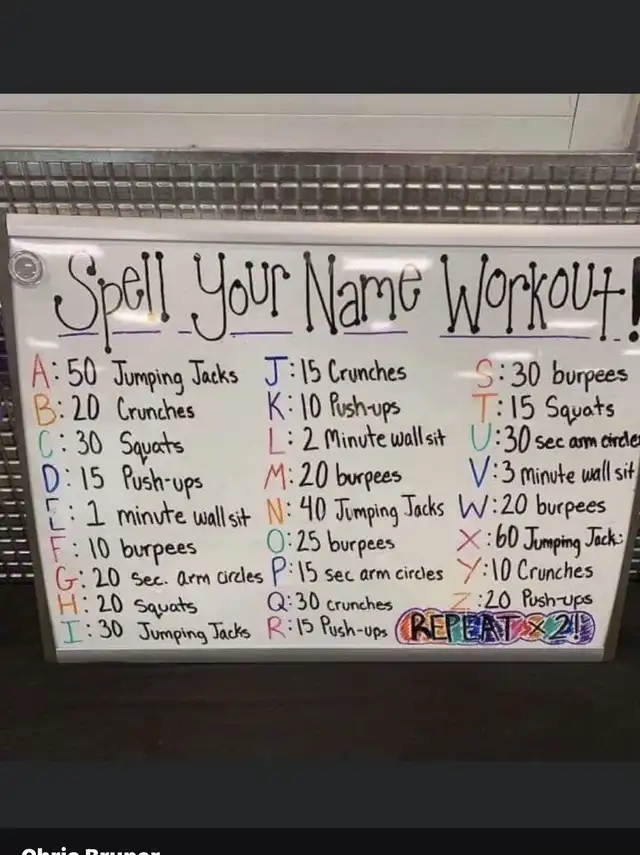 Spell Your Name Workout!
A: 50 Jumping Jacks
B: 20 Crunches
C: 30 Squats
D: 15 Push-ups
E: 1 minute wall sit
F: 10 burpees
G: 20 sec. arm circles
H: 20 squats
I: 30 Jumping Jacks
J: 15 Crunches
K: 10 Push-ups
L: 2 Minute wall sit
M: 20 burpees
N: 40 Jumping Jacks
O: 25 burpees
P: 15 sec arm circles
Q: 30 crunches
R: 15 Push-ups
S: 30 burpees
T: 15 Squats
U: 30 sec arm circles
V: 3 minute wall sit
W: 20 burpees
X: 60 Jumping Jacks
Y: 10 Crunches
Z: 20 Push-ups
REPEAT x 2!
Chris Bruner